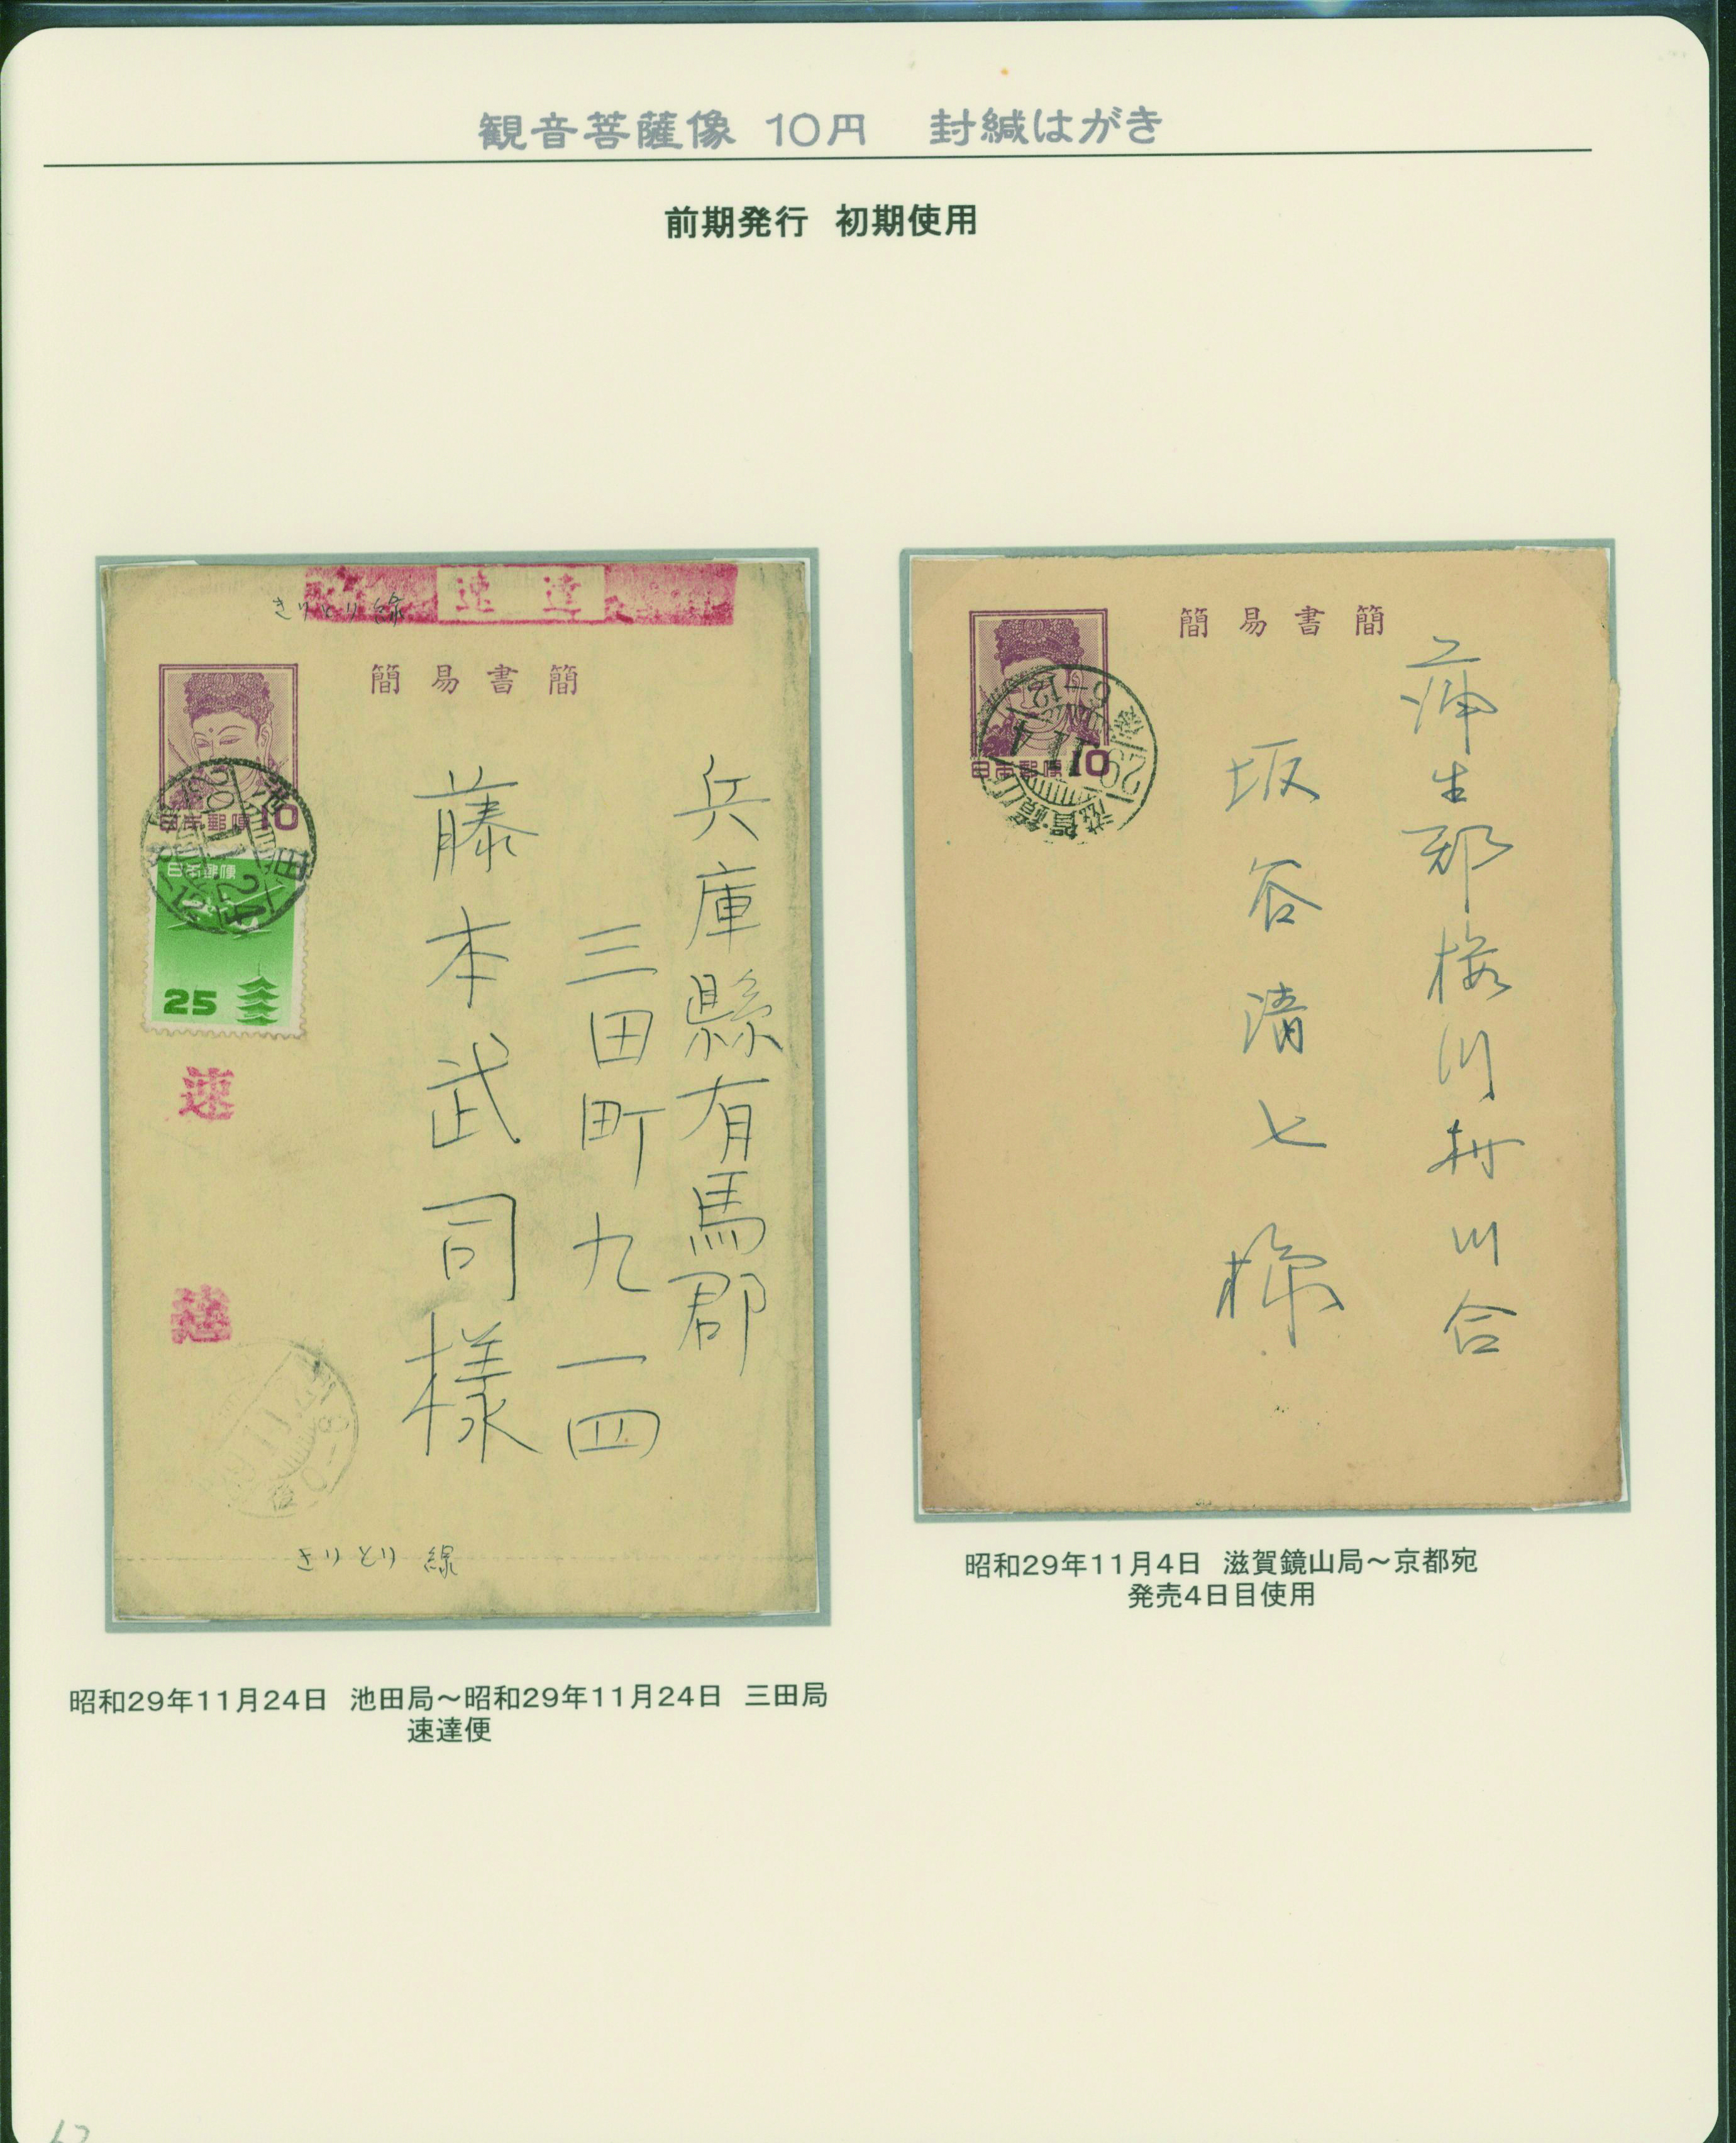 観音菩薩像 10円 封緘はがき
前期発行 初期使用
速達
きりとり線
簡易書簡
日本郵便 10
池田
日本郵便
25
速達
兵庫縣有馬郡
三田町九一四
藤本武司様
きりとり線
昭和29年11月24日 池田局~昭和29年11月24日 三田局
速達便
簡易書簡
日本郵便 10
29.11.4
滋賀・鏡山
蒲生郡桜川村川合
坂谷清七様
昭和29年11月4日 滋賀鏡山局~京都宛
発売4日目使用